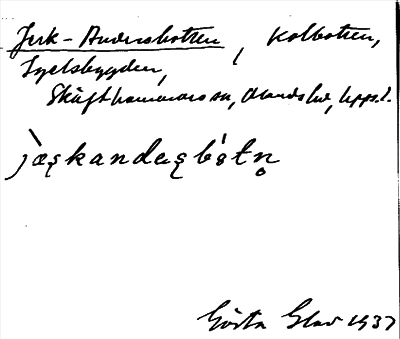 Jerk-Andersbotten, Kolbotten,
Ingelsbygden,
Skäfthammars sn, Olands hd, Uppsl.
jæskandæsbotn
Gösta Glad 1937